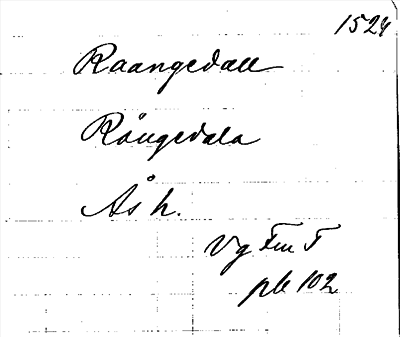 1524
Raangedall
Rångedala
Ås h.
Vg Fm T
pb 102